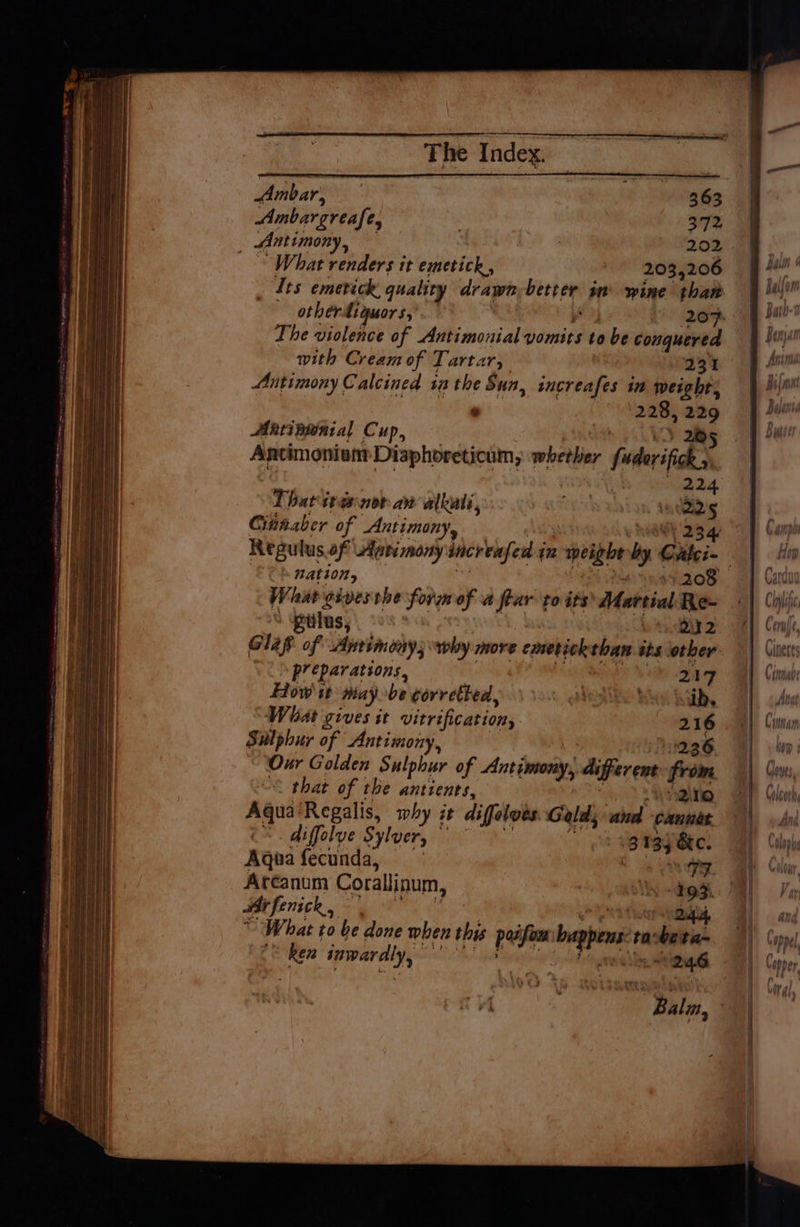 The Index.
Ambar, 363
Ambargreaſe, 372
Antimony, 202
What renders it emetick, 203,206
Its emetick quality drawn better in wine than
other liquors, 207.
The violence of Antimonial vomits to be conquered
with Cream of Tartar, 231
Antimony Calcined in the Sun, increaſes in weight,
228, 229
Antimonial Cup, 205
Antimonium Diaphoreticum, whether ſudorifick,
224
That it is not an alkali, 225
Cinnaber of Antimony, 234
Regulus of Antimony increaſed in weight by Calci-
nation, 208
What gives the form of a ſtar to its Martial Re-
gulus, 212
Glaſs of Antimony, why more emetick than its other
preparations, 217
How it may be corrected, ib.
What gives it vitrification, 216
Sulphur of Antimony, 236
Our Golden Sulphur of Antimony, different from
that of the antients, 210
Aqua Regalis, why it diſſolves Gold, and cannot
diſſolve Sylver, 313, &c.
Aqua ſecunda, 77.
Arcanum Corallinum, 193.
Arſenick, 244
What to be done when this poiſon happens to be ta-
ken inwardly, 246
Balm,
Balm
Balſom
Bath-
Benjam
Biſmut
Butter
Camph
How
Carduu
Chylific
Ceruſe,
Cinnabe
Cinnam
Cloves,
Colcoth
And
Coloph
Colour,
Var
and
Coppel
Copper,
Coral,